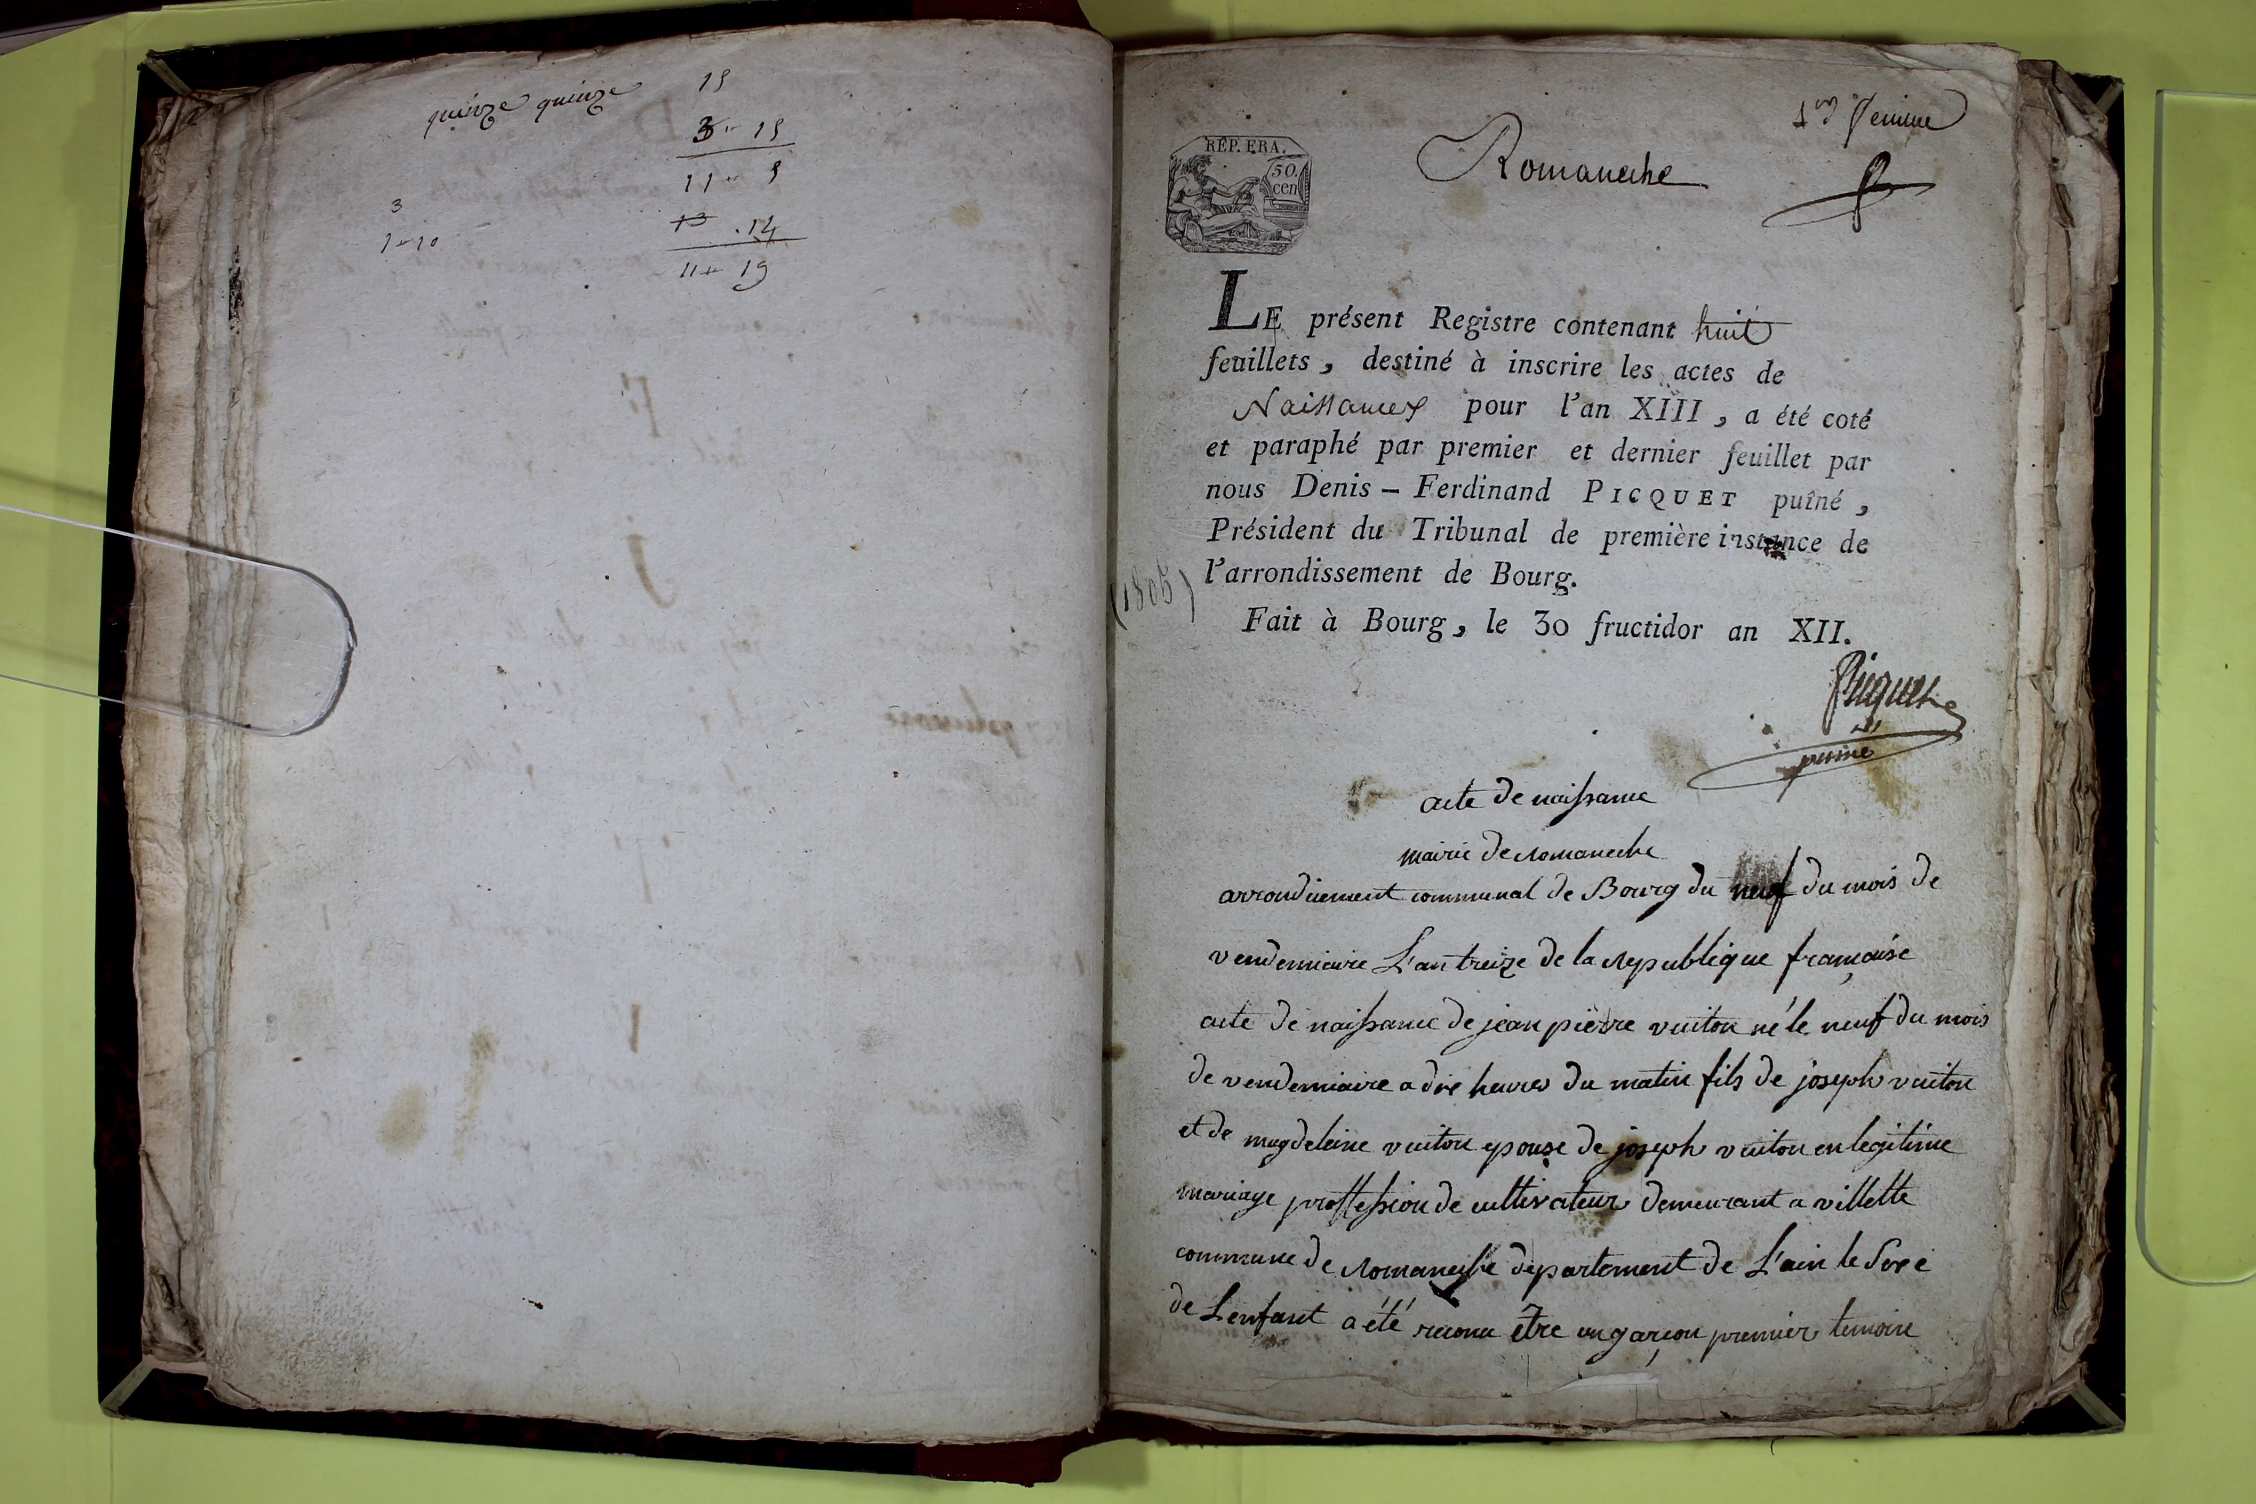 quinze quinze
15
3 - 15
11 - 5
13 . 14
11 - 19
3
1 - 10
1er feuille
REP. FRA.
50.
cen
Romaneche
LE présent Registre contenant huit
feuillets, destiné à inscrire les actes de
Naissances pour l'an XIII, a été coté
et paraphé par premier et dernier feuillet par
nous Denis – Ferdinand PICQUET puîné,
Président du Tribunal de première instance de
l'arrondissement de Bourg.
(1805)
Fait à Bourg, le 30 fructidor an XII.
Picquet
puiné
acte de naissance
mairie de romaneche
arrondicement communal de Bourg du neuf du mois de
vendemiaire L'an treize de la republique françaisе
acte de naissance de jean pierre vuiton né le neuf du mois
de vendemiaire a dix heures du matin fils de joseph vuiton
et de magdeleine vuiton epouse de joseph vuiton en legitime
mariage proffession de cultivateur demeurant a villette
commune de romaneche departement de L'ain le sexe
de Lenfant a été reconu être un garçon premier temoin